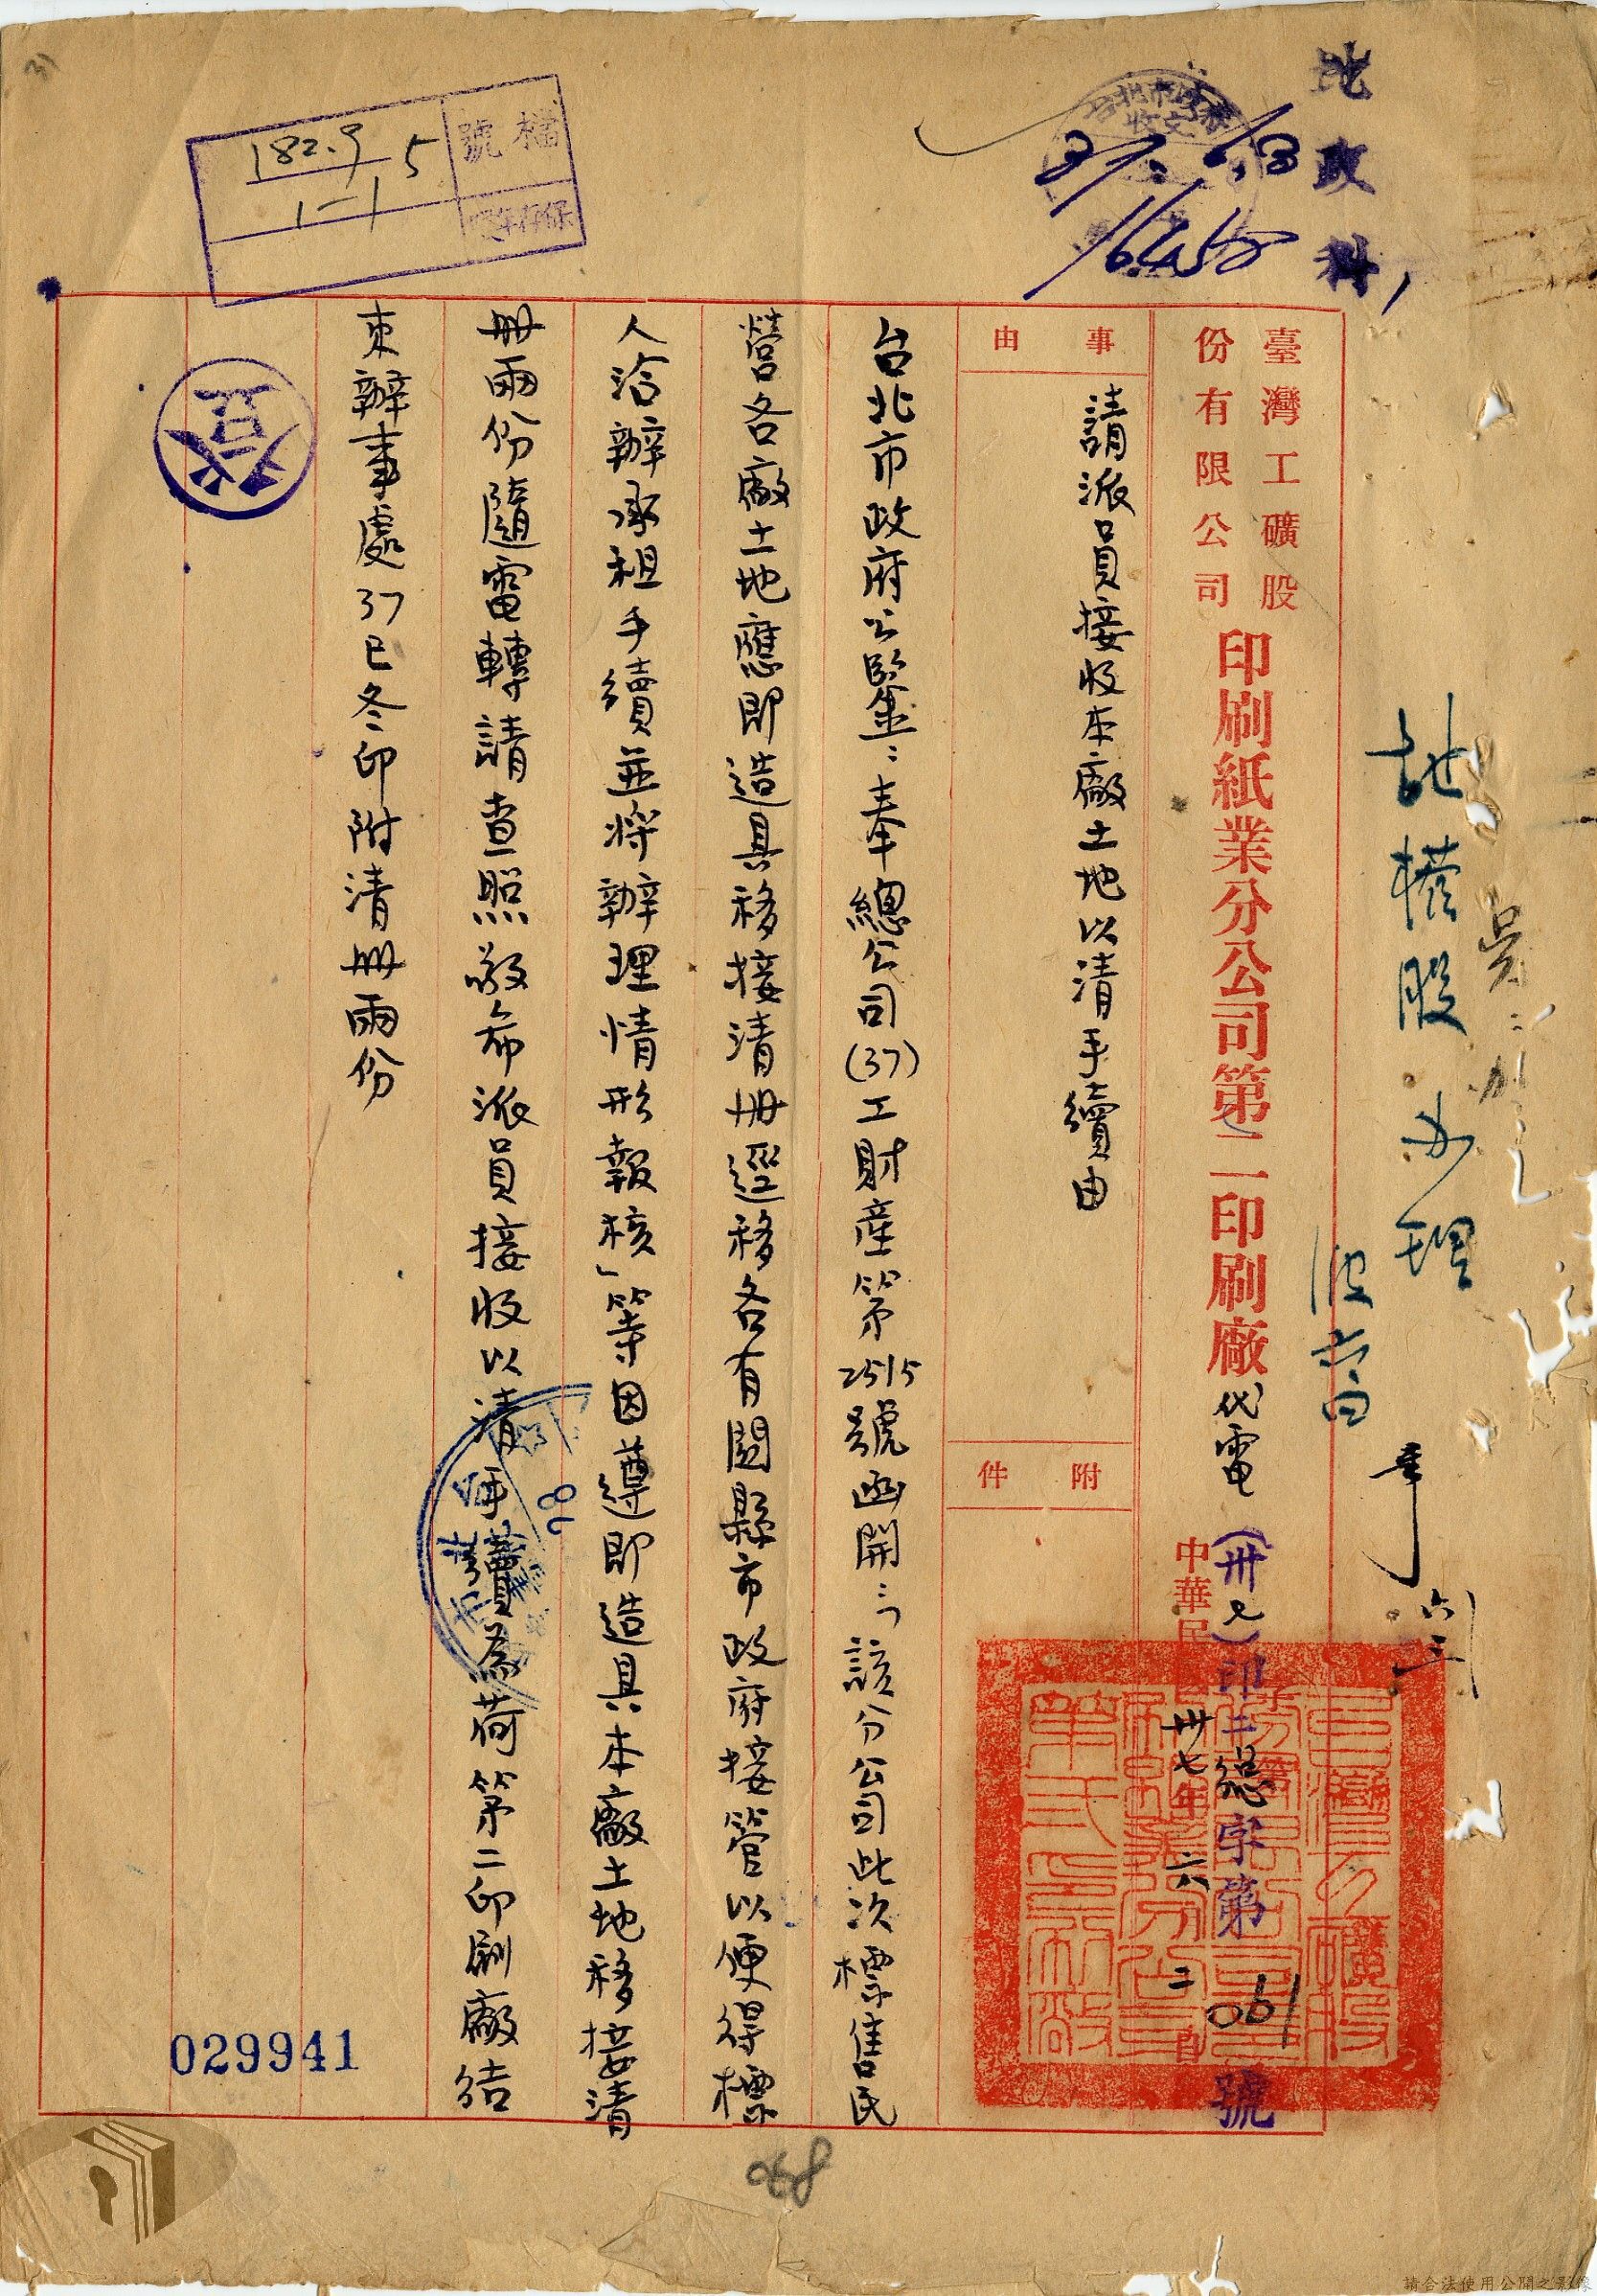 地政科
檔號
182.9
5
1-1
保存年
台北市政府
收文
37.6.3
16458
臺灣工礦股份有限公司
印刷紙業分公司第二印刷廠代電
(卅七)印二總字第061號
中華民國卅七年六月二日
事由
請派員接收本廠土地以清手續由
附件
台北市政府公鑒:奉總公司(37)工財產第2515號函開:「該分公司此次標售民
營各廠土地應即造具移接清冊逕移各有關縣市政府接管以便得標
人洽辦承租手續並將辦理情形報核」等因遵即造具本廠土地移接清
冊兩份隨電轉請查照敬希派員接收以清手續為荷第二印刷廠結
束辦事處37巳冬印附清冊兩份
地權股办理
六三
登
78
029941
請合法使用公開之影像